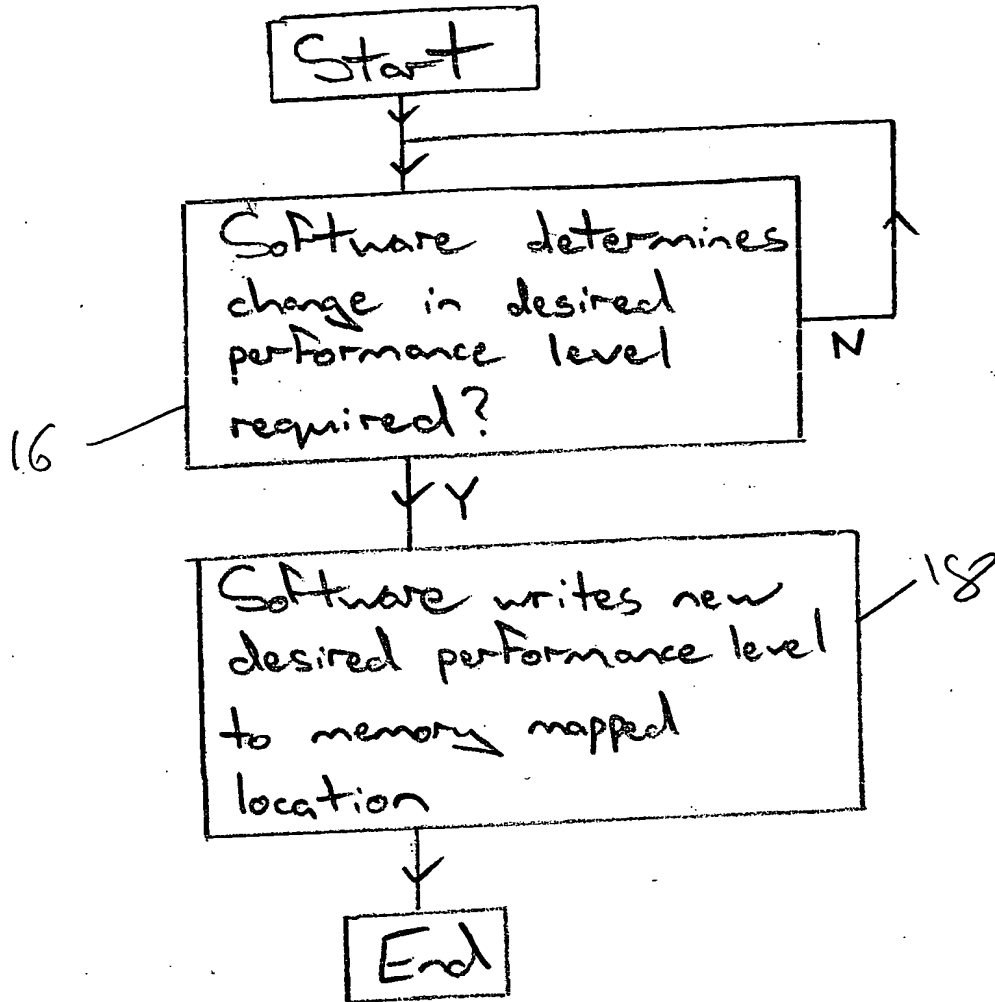 Start
Software determines
change in desired
performance level
required?
N
16
Y
Software writes new
desired performance level
to memory mapped
location
18
End